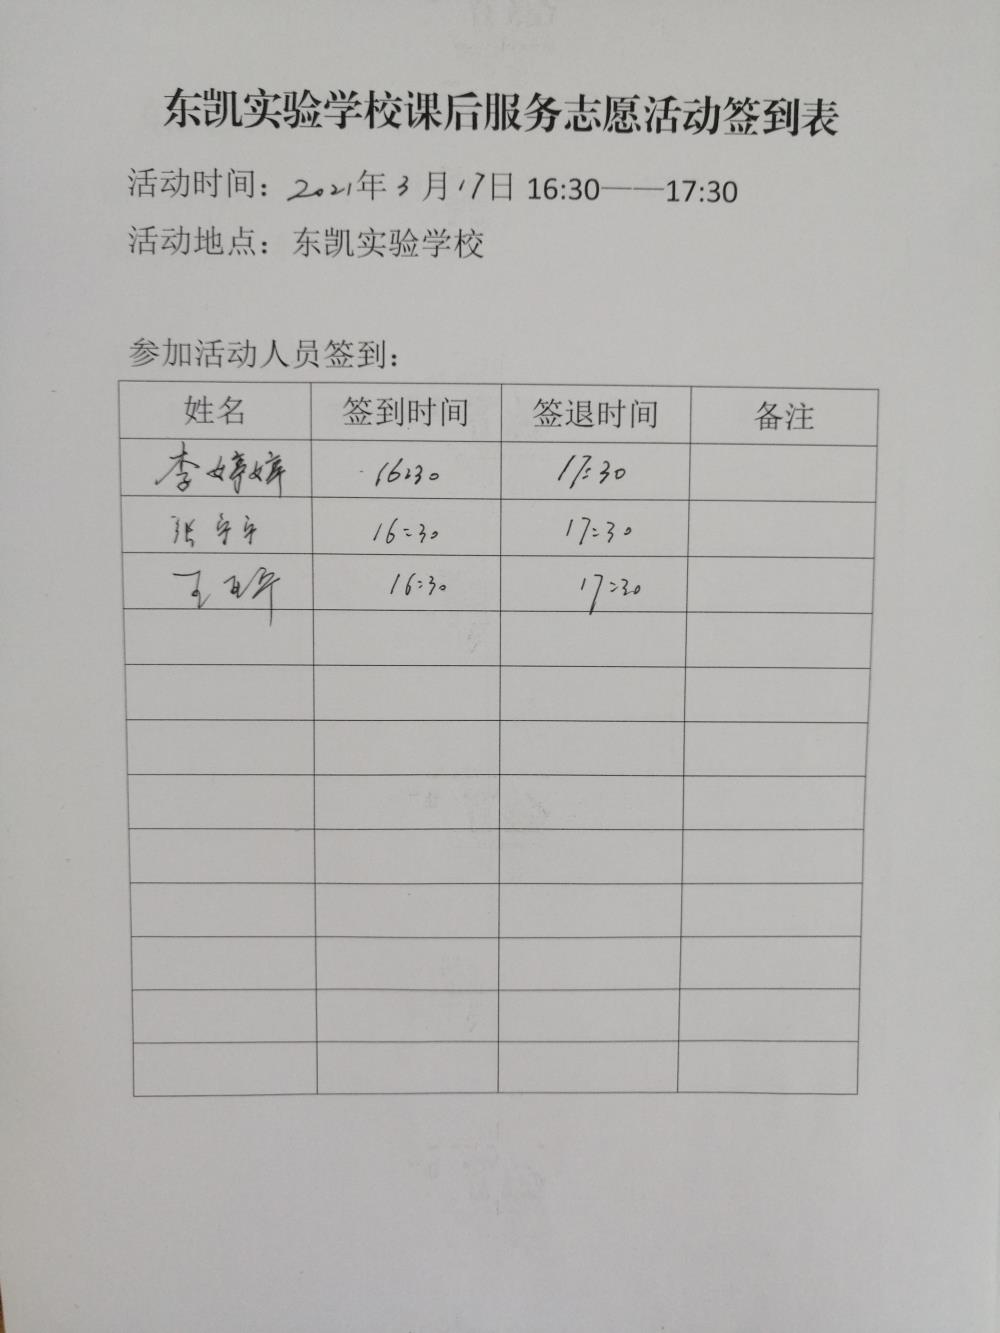 东凯实验学校课后服务志愿活动签到表
活动时间：2021年3月17日 16:30——17:30
活动地点：东凯实验学校
参加活动人员签到：
姓名 签到时间 签退时间 备注
李婷婷 16:30 17:30
张宁宁 16:30 17:30
王 16:30 17:30